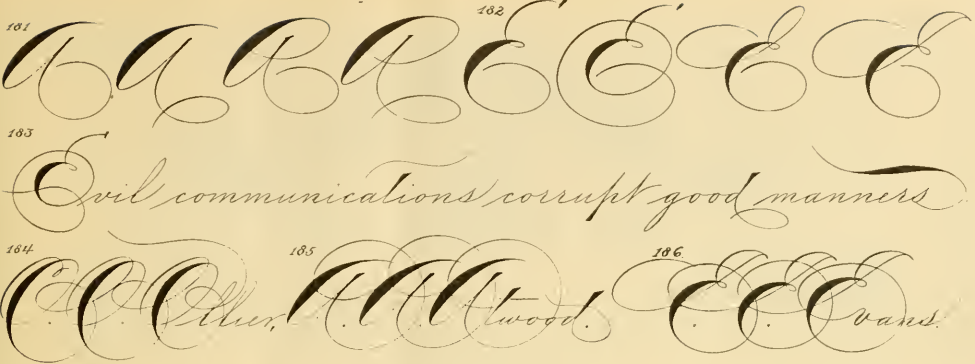 181 A A A A 182 E E E E
183
Evil communications corrupt good manners
184 185 186
C. C. Collier. A. A. Atwood. E. E. Evans.